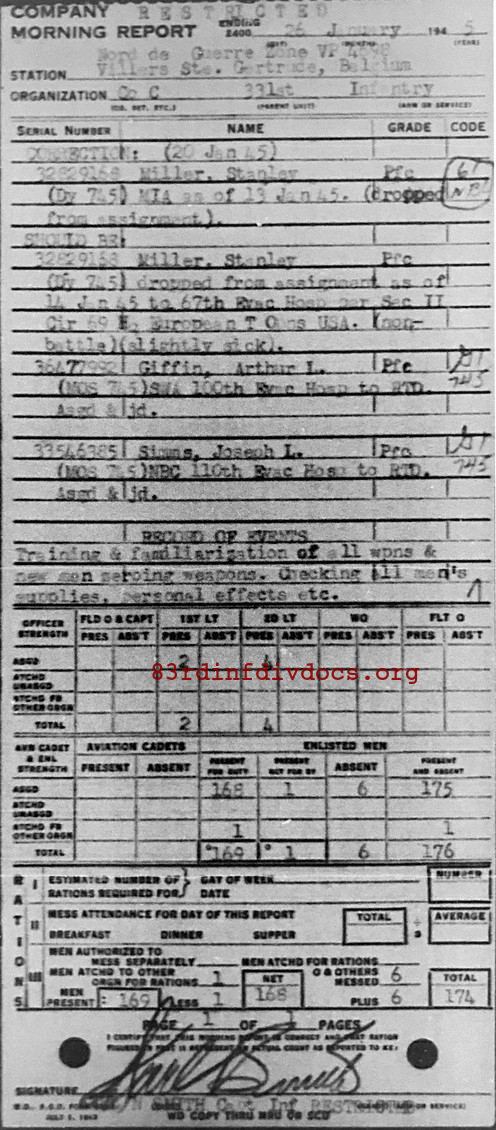 COMPANY RESTRICTED
MORNING REPORT ENDING 2400 26 January 1945
(YEAR)
Nord de Guerre Zone VP
STATION Villers Ste. Gertrude, Belgium
ORGANIZATION Co C 331st Infantry
(CO. DET. ETC.) (PARENT UNIT) (ARM OR SERVICE)
SERIAL NUMBER NAME GRADE CODE
CORRECTION: (20 Jan 45)
32829168 Miller, Stanley Pfc
(Dy 745) MIA as of 13 Jan 45. (dropped
from assignment).
SHOULD BE:
32829168 Miller, Stanley Pfc
(Dy 745) dropped from assignment as of
14 Jan 45 to 67th Evac Hosp per Sec II
Cir 69 Hq European T Opns USA. (non-
battle)(slightly sick).
36477992 Giffin, Arthur L. Pfc
(MOS 745)SWA 100th Evac Hosp to RTD. 745
Asgd & jd.
33546385 Simms, Joseph L. Pfc
(MOS 745)NBC 110th Evac Hosp to RTD. 745
Asgd & jd.
RECORD OF EVENTS
Training & familiarization of all wpns &
new men zeroing weapons. Checking all men's
supplies, personal effects etc.
OFFICER STRENGTH FLD O & CAPT 1ST LT 2D LT WO FLT O
PRES ABS'T PRES ABS'T PRES ABS'T PRES ABS'T PRES ABS'T
ASGD 2 4
83rdinfdivdocs.org
ATCHD UNASGD
ATCHD FR OTHER ORGN
TOTAL 2 4
AVN CADET & ENL STRENGTH AVIATION CADETS ENLISTED MEN
PRESENT ABSENT PRESENT FOR DUTY PRESENT NOT FOR DY ABSENT PRESENT AND ABSENT
ASGD 168 1 6 175
ATCHD UNASGD
ATCHD FR OTHER ORGN 1 1
TOTAL 169 1 6 176
RATIONS
I ESTIMATED NUMBER OF RATIONS REQUIRED FOR DAY OF WEEK DATE NUMBER
II MESS ATTENDANCE FOR DAY OF THIS REPORT TOTAL AVERAGE
BREAKFAST DINNER SUPPER
III MEN AUTHORIZED TO MESS SEPARATELY MEN ATCHD FOR RATIONS
MEN ATCHD TO OTHER ORGN FOR RATIONS 1 NET O & OTHERS MESSED 6 TOTAL
MEN PRESENT: 169 LESS 1 168 PLUS 6 174
PAGE 1 OF 1 PAGES
I CERTIFY THAT THIS MORNING REPORT IS CORRECT AND THAT RATION
FIGURES IN PART III REPRESENT AN ACTUAL COUNT AS REPORTED TO ME:
SIGNATURE
SMITH Capt Inf RESTRICTED
W.D., A.G.O. FORM
JULY 1, 1943
WD COPY THRU MRU OR SCU